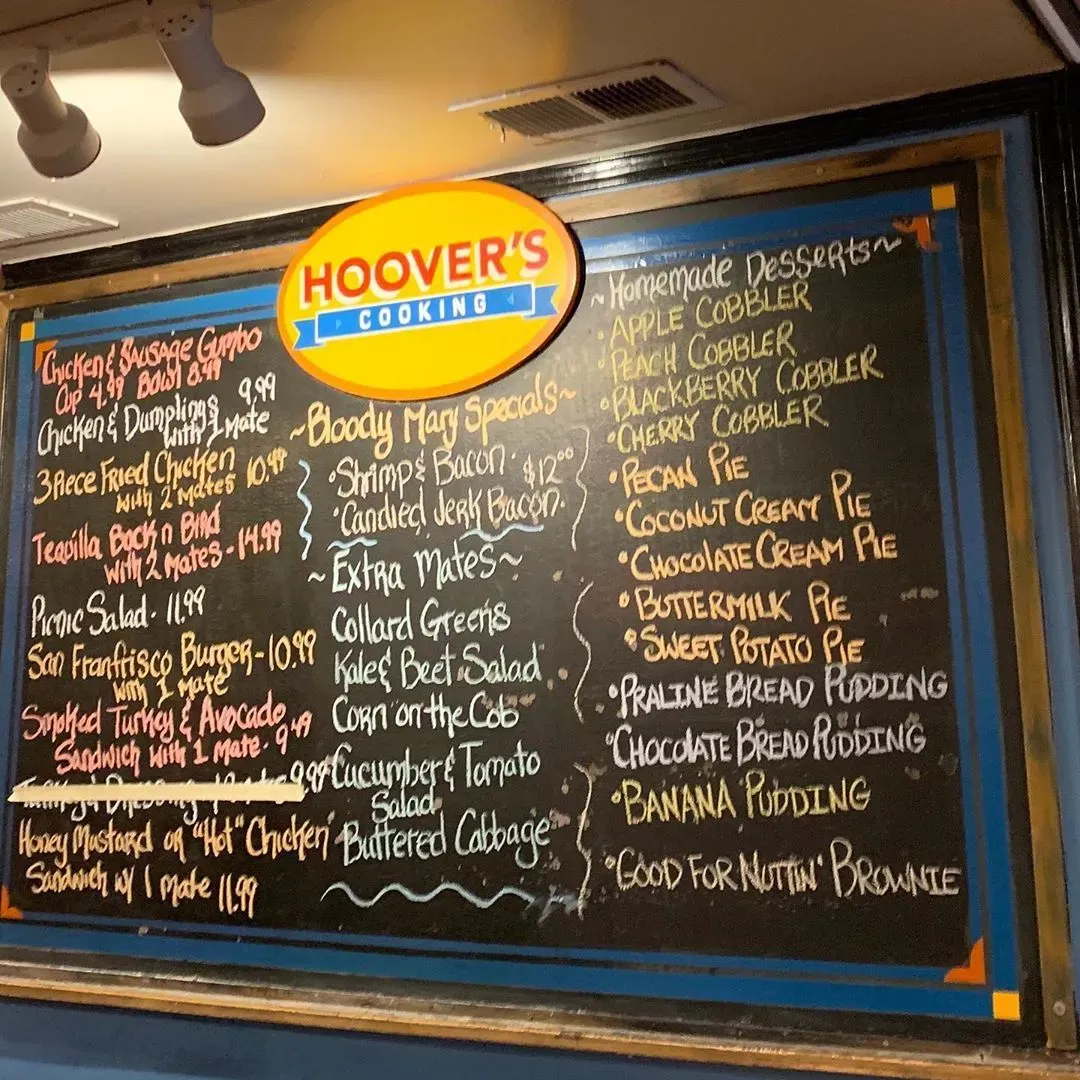 HOOVER'S
COOKING
Chicken & Sausage Gumbo
Cup 4.99 Bowl 8.99
Chicken & Dumplings 9.99
with 1 Mate
3 Piece Fried Chicken
with 2 Mates 10.99
Tequilla Bock n Bird
with 2 Mates - 14.99
Picnic Salad - 11.99
San Franfrisco Burger - 10.99
with 1 Mate
Smoked Turkey & Avocado
Sandwich with 1 Mate - 9.49
9.99
Honey Mustard or "Hot" Chicken
Sandwich w/ 1 Mate 11.99
~Bloody Mary Specials~
•Shrimp & Bacon•
$12.00
•Candied Jerk Bacon•
~Extra Mates~
Collard Greens
Kale & Beet Salad
Corn on the Cob
Cucumber & Tomato
Salad
Buttered Cabbage
~Homemade Desserts~
•APPLE COBBLER
•PEACH COBBLER
•BLACKBERRY COBBLER
•CHERRY COBBLER
•PECAN PIE
•COCONUT CREAM PIE
•CHOCOLATE CREAM PIE
•BUTTERMILK PIE
•SWEET POTATO PIE
•PRALINE BREAD PUDDING
•CHOCOLATE BREAD PUDDING
•BANANA PUDDING
•GOOD FOR NUTTIN' BROWNIE